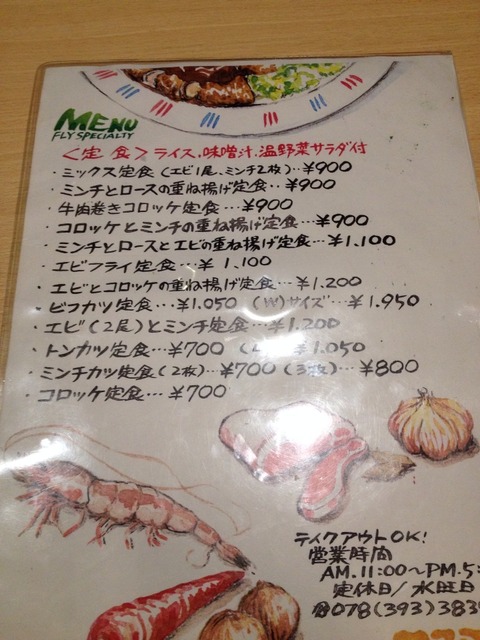 MENU
FLY SPECIALTY
＜定食＞ライス、味噌汁、温野菜サラダ付
・ミックス定食（エビ1尾、ミンチ2枚）‥¥900
・ミンチとロースの重ね揚げ定食‥¥900
・牛肉巻きコロッケ定食…¥900
・コロッケとミンチの重ね揚げ定食…¥900
・ミンチとロースとエビの重ね揚げ定食…¥1,100
・エビフライ定食…¥1,100
・エビとコロッケの重ね揚げ定食…¥1,200
・ビフカツ定食…¥1.050（W）サイズ…¥1.950
・エビ（2尾）とミンチ定食…¥1.200
・トンカツ定食…¥700 ¥1.050
・ミンチカツ定食（2枚）‥¥700（3枚）…¥800
・コロッケ定食…¥700
テイクアウトOK!
営業時間
AM.11:00～PM.5:
定休日/水曜日
☎078(393)383